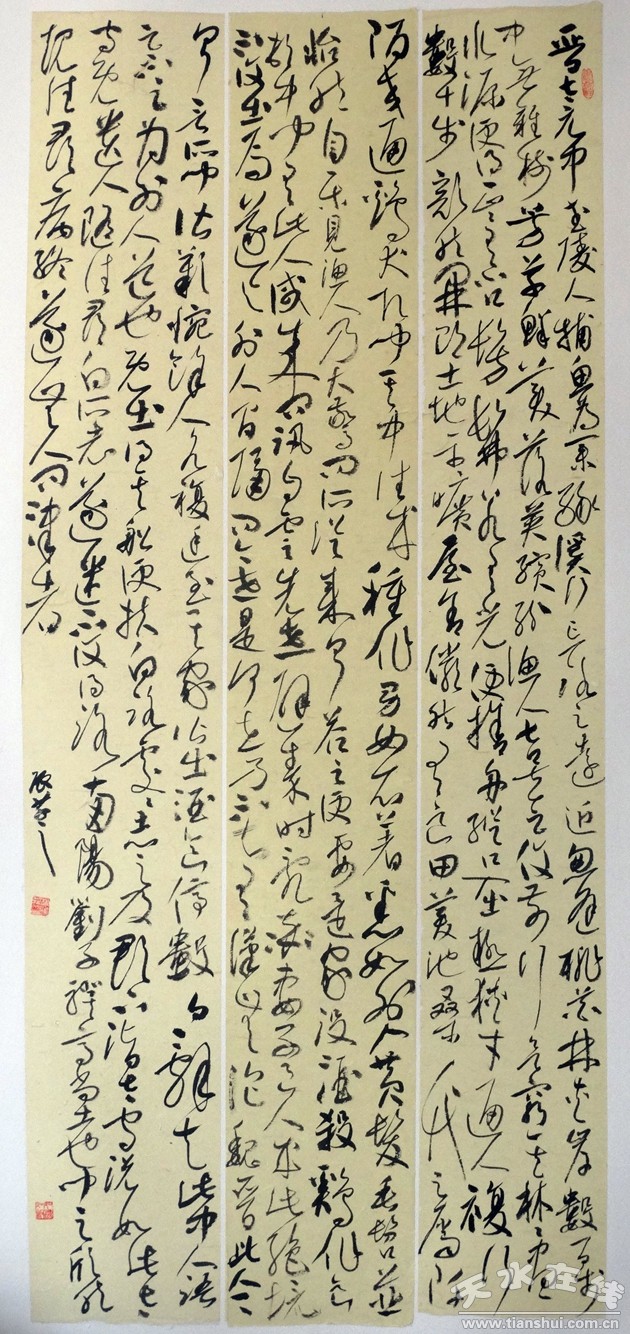 晋太元中武陵人捕魚為業緣溪行忘路之遠近忽逢桃花林夾岸數百步
中無雜樹芳草鮮美落英繽紛漁人甚異之復前行欲窮其林林盡
水源便得一山有口髣髴若有光便捨舟從口入初極狹才通人複行
數十步豁然開朗土地平曠屋舍儼然有良田美池桑竹之屬阡
陌交通鷄犬相聞其中往來種作男女衣著悉如外人黄髮垂髫並
怡然自樂見漁人乃大驚問所從來具答之便要還家設酒殺鷄作食
村中聞有此人咸來問訊自云先世避秦時亂率妻子邑人來此絕境
不復出焉遂與外人間隔問今世是何世乃不知有漢無論魏晉此人一一
具言所聞皆歎惋餘人各複延至其家皆出酒食停數日辭去此中人語
云不足為外人道也既出得其船便扶向路處處志之及郡下詣太守説如此太
守即遣人隨往尋向所志遂迷不復得路南陽劉子驥高尚士也聞之欣然
規往尋病終遂無人問津者
天水在线
www.tianshui.com.cn